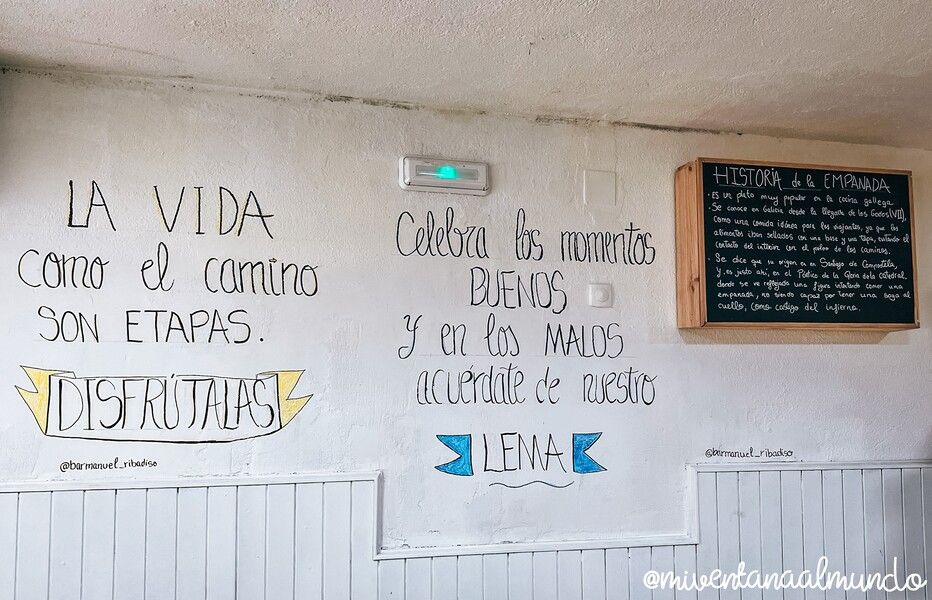 LA VIDA
como el camino
SON ETAPAS.
DISFRÚTALAS
@barmanuel_ribadiso
Celebra los momentos
BUENOS
Y en los MALOS
acuérdate de nuestro
LEMA
HISTORIA de la EMPANADA
· Es un plato muy popular en la cocina gallega
· Se conoce en Galicia desde la llegada de los Godos (VII),
como una comida idónea para los viajantes, ya que los
alimentos iban sellados con una base y una tapa, evitando el
contacto del interior con el polvo de los caminos.
· Se dice que su origen es en Santiago de Compostela,
y es justo ahí, en el Pórtico de la Gloria de la Catedral,
donde se ve reflejada una figura intentando comer una
empanada, no siendo capaz por tener una soga al
cuello, como castigo del infierno.
@barmanuel_ribadiso
@miventanaalmundo